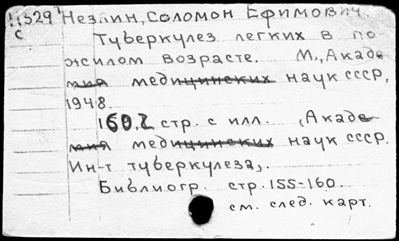 11529 Незлин, Соломон Ефимович.
С
Туберкулез легких в по
жилом возрасте. М., Акаде
мия медицинских наук СССР,
1948.
160,2 стр. с илл. (Акаде
мия медицинских наук СССР.
Ин-т туберкулеза).
Библиогр. стр. 155-160.
см. след. карт.